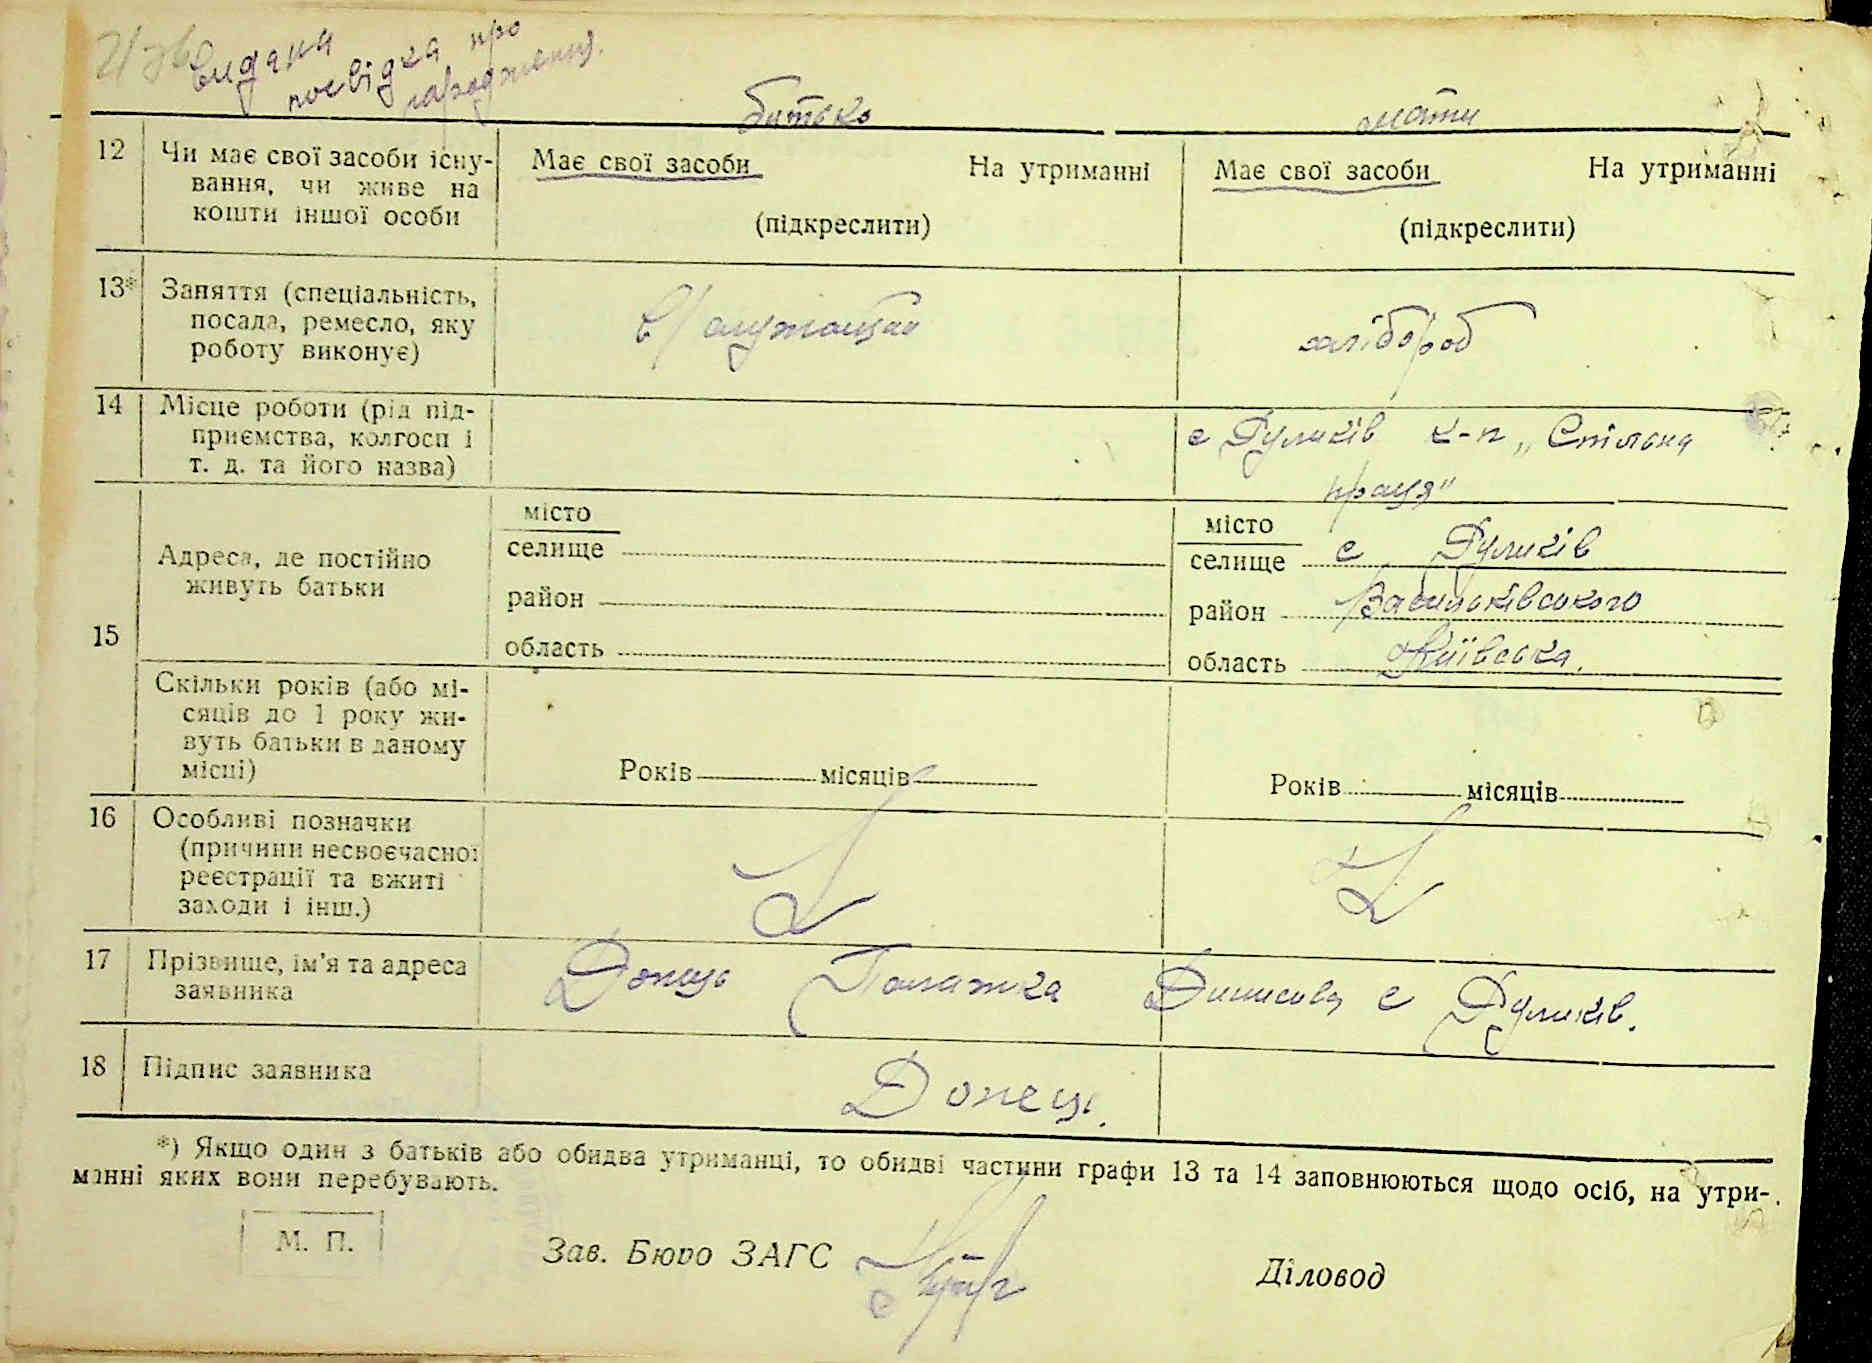 видана
посвідка про
народження.
батько мати
12 Чи має свої засоби існу- Має свої засоби На утриманні Має свої засоби На утриманні
вання, чи живе на
кошти іншої особи (підкреслити) (підкреслити)
13* Заняття (спеціальність,
посада, ремесло, яку в/служащий хлібороб
роботу виконує)
14 Місце роботи (рід під- с Дуліків к-п „Спільна
приємства, колгосп і
т. д. та його назва) праця"
місто місто
Адреса, де постійно селище селище с Дуліків
живуть батьки район район Васильківського
15 область область Київська.
Скільки років (або мі-
сяців до 1 року жи-
вуть батьки в даному
місці) Років місяців Років місяців
16 Особливі позначки
(причини несвоєчасної
реєстрації та вжиті
заходи і інш.)
17 Прізвище, ім'я та адреса Донець Палажка Денисова с Дуліків.
заявника
18 Підпис заявника Донець.
*) Якщо один з батьків або обидва утриманці, то обидві частини графи 13 та 14 заповнюються щодо осіб, на утри-
манні яких вони перебувають.
М. П. Зав. Бюро ЗАГС Діловод